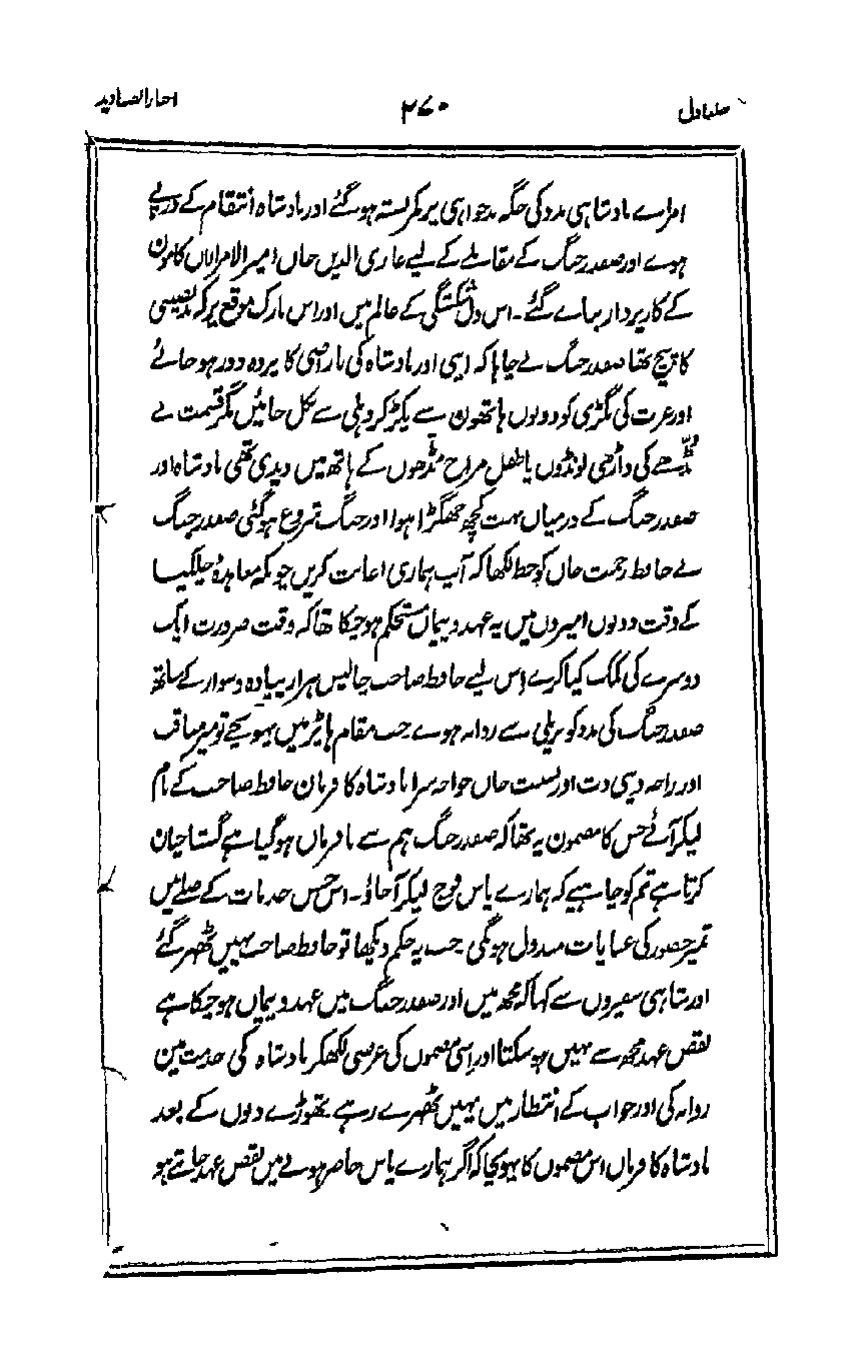 جلد اول ۲۷۰ اخبار الصنادید
امراے بادشاہی مدد کی جگہ بدخواہی پر کمربستہ ہو گئے اور بادشاہ انتقام کے درپے
ہوے اور صفدر جنگ کے مقابلے کے لیے غازی الدین خاں امیر الامرا
کے کار پرداز بناے گئے۔ اس دل شکستگی کے عالم میں اور اس نازک موقع پر کہ بدنصیبی
کا نتیجہ تھا صفدر جنگ نے چاہا کہ اپنی اور بادشاہ کی ناراضی کا پردہ دور ہو جائے
اور عزت کی پگڑی کو دونوں ہاتھوں سے پکڑ کر دہلی سے نکل جائیں مگر قسمت نے
بڈھے کی داڑھی لونڈوں یا طفل مزاج بڈھوں کے ہاتھ میں دیدی تھی بادشاہ اور
صفدر جنگ کے درمیان بہت کچھ جھگڑا ہوا اور جنگ شروع ہو گئی صفدر جنگ
نے حافظ رحمت خاں کو خط لکھا کہ آپ ہماری اعانت کریں چونکہ معاہدۂ چلکیا
کے وقت دونوں امیروں میں یہ عہد و پیمان مستحکم ہو چکا تھا کہ وقت ضرورت ایک
دوسرے کی کمک کیا کرے اس لیے حافظ صاحب چالیس ہزار پیادہ و سوار کے ساتھ
صفدر جنگ کی مدد کو بریلی سے روانہ ہوے جب مقام ہاپڑ میں پہونچے تو میر مناقب
اور راجہ دیبی دت اور بسنت خاں خواجہ سرا بادشاہ کا فرمان حافظ صاحب کے نام
لیکر آئے جس کا مضمون یہ تھا کہ صفدر جنگ ہم سے نافرمان ہو گیا ہے گستاخیان
کرتا ہے تم کو چاہیے کہ ہمارے پاس فوج لیکر آجاؤ۔ اس حسن خدمات کے صلے میں
تمپر حضور کی عنایات مبذول ہونگی جب یہ حکم دیکھا تو حافظ صاحب یہیں ٹھہر گئے
اور شاہی سفیروں سے کہا کہ مجھ میں اور صفدر جنگ میں عہد و پیمان ہو چکا ہے
نقض عہد مجھ سے نہیں ہو سکتا اور اسی مضمون کی عرضی لکھکر بادشاہ کی خدمت مین
روانہ کی اور جواب کے انتظار میں یہیں ٹھہرے رہے تھوڑے دنوں کے بعد
بادشاہ کا فرمان اس مضمون کا پہونچا کہ اگر ہمارے پاس حاضر ہونے میں نقض عہد جانتے ہو